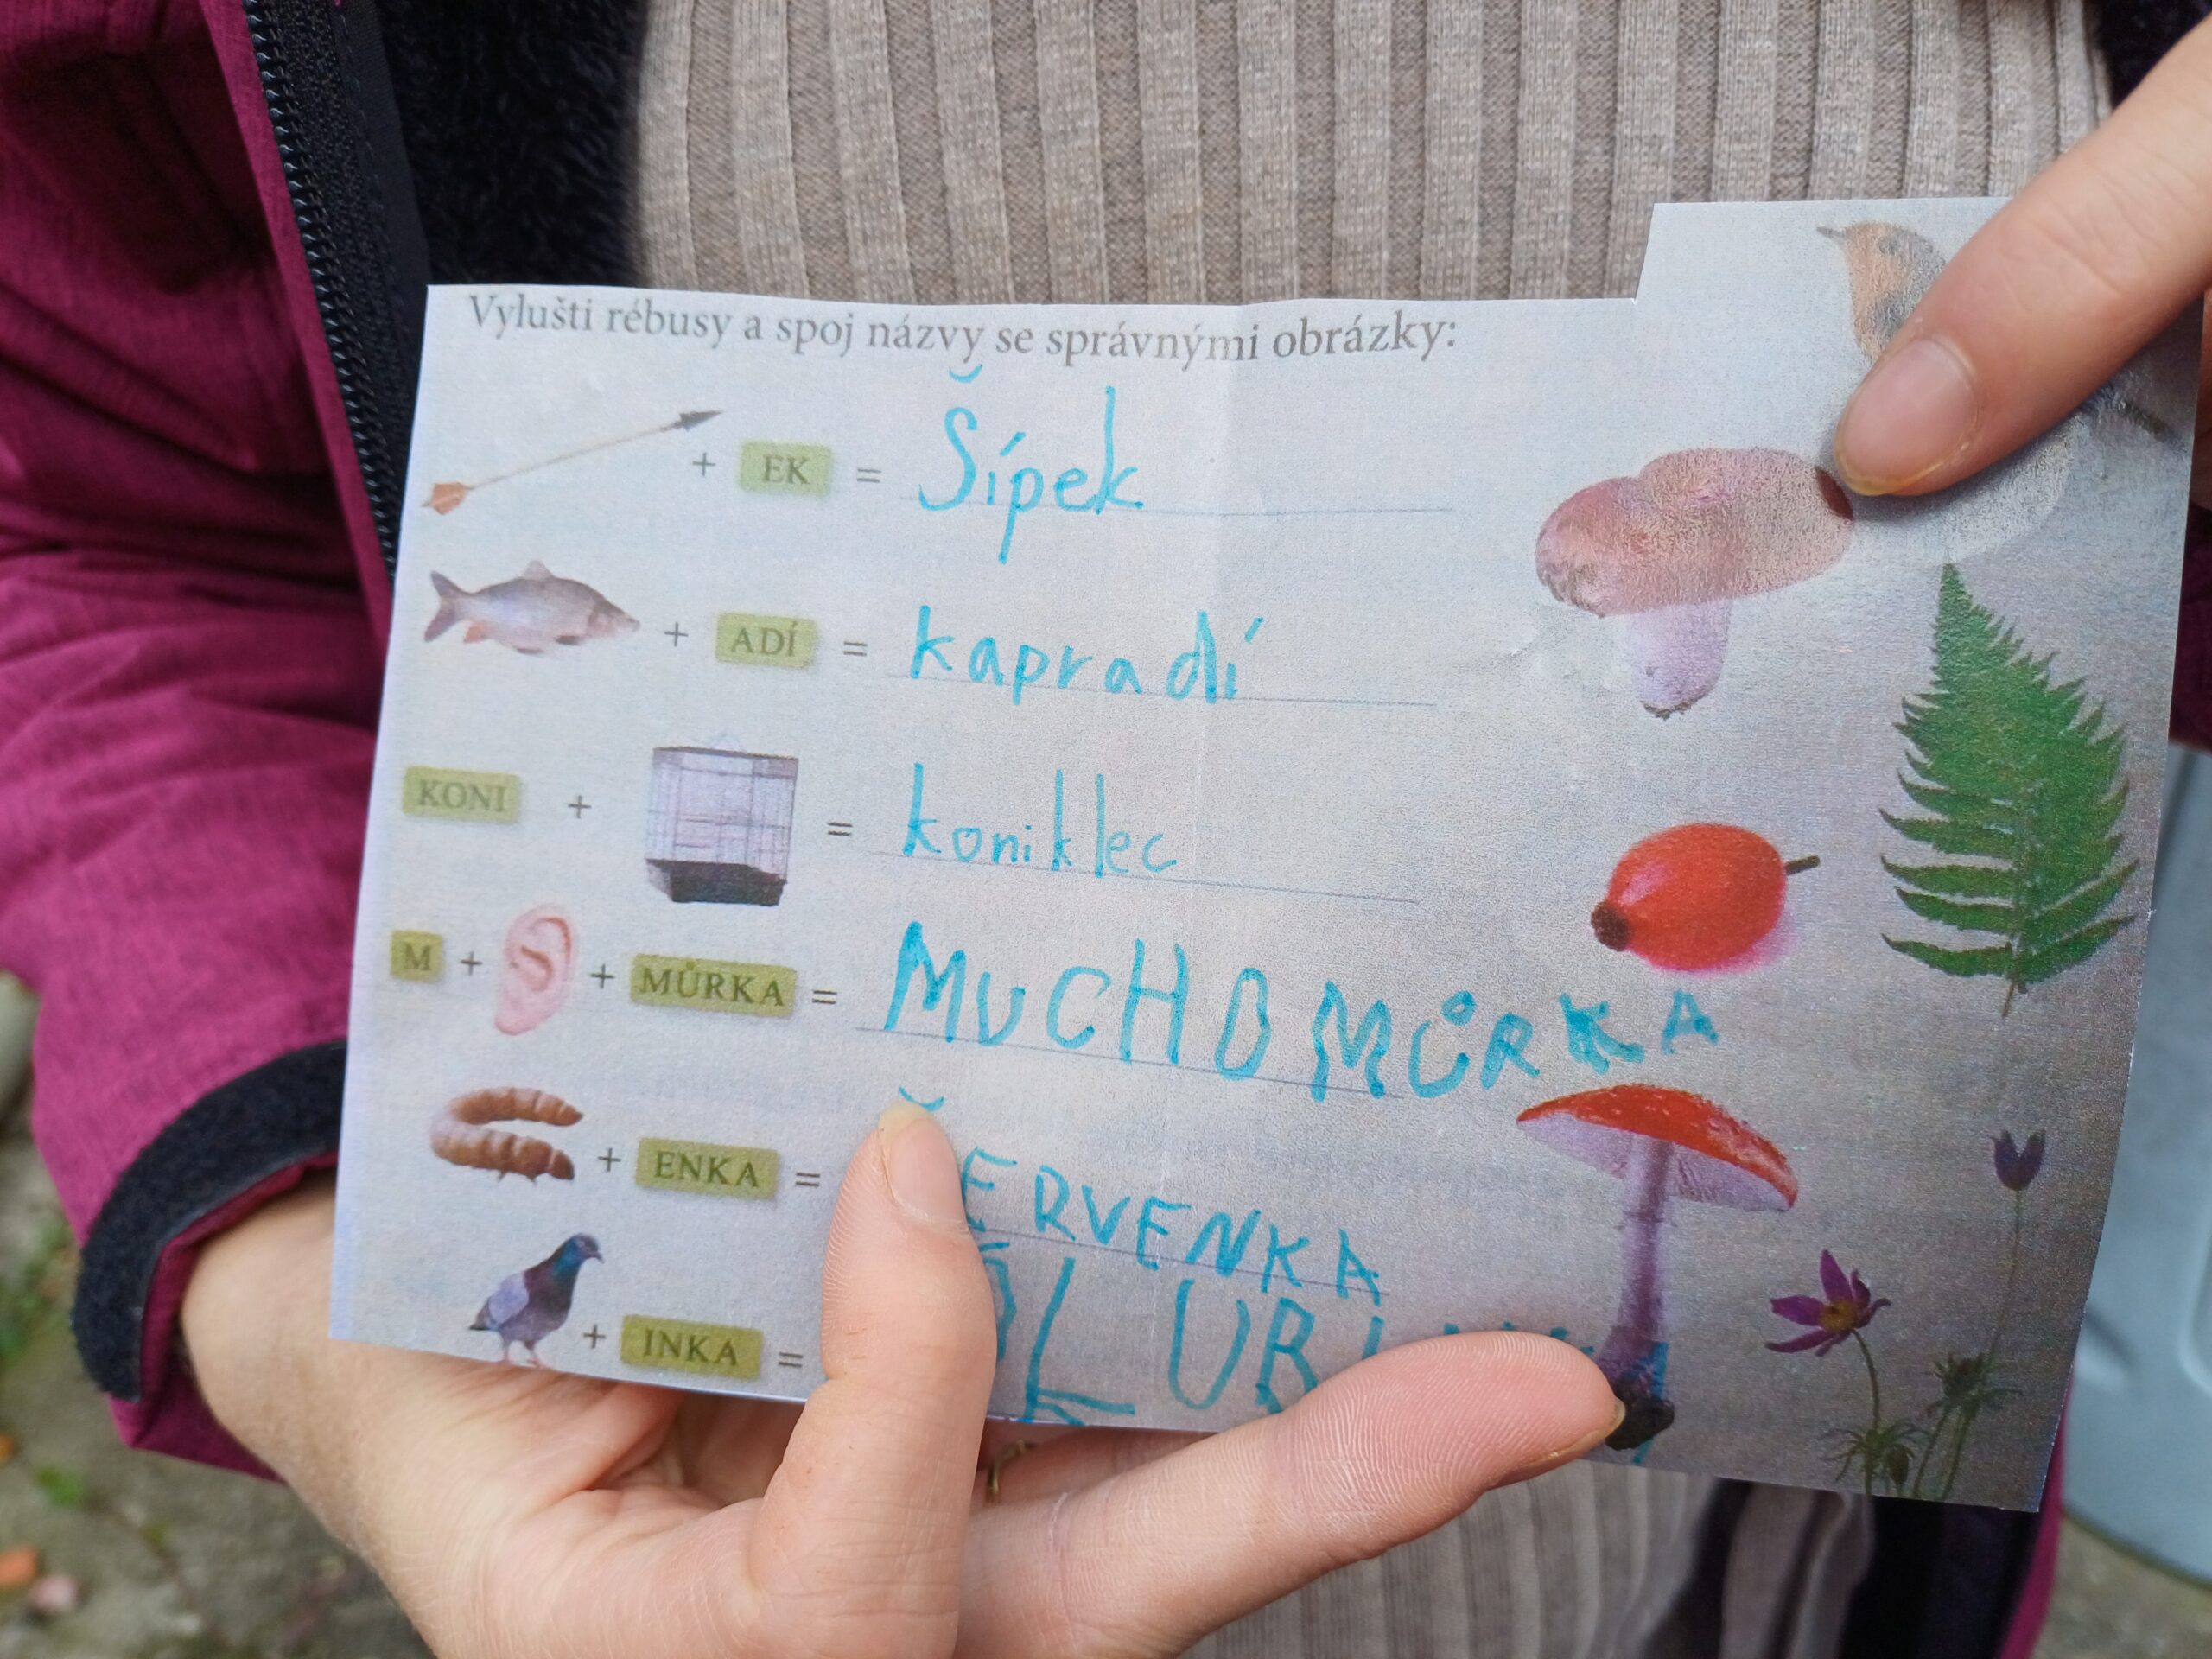 Vylušti rébusy a spoj názvy se správnými obrázky:
+ EK = Šípek
+ ADÍ = kapradí
KONI + = koniklec
M + + MŮRKA = MUCHOMŮRKA
+ ENKA = ČERVENKA
+ INKA =